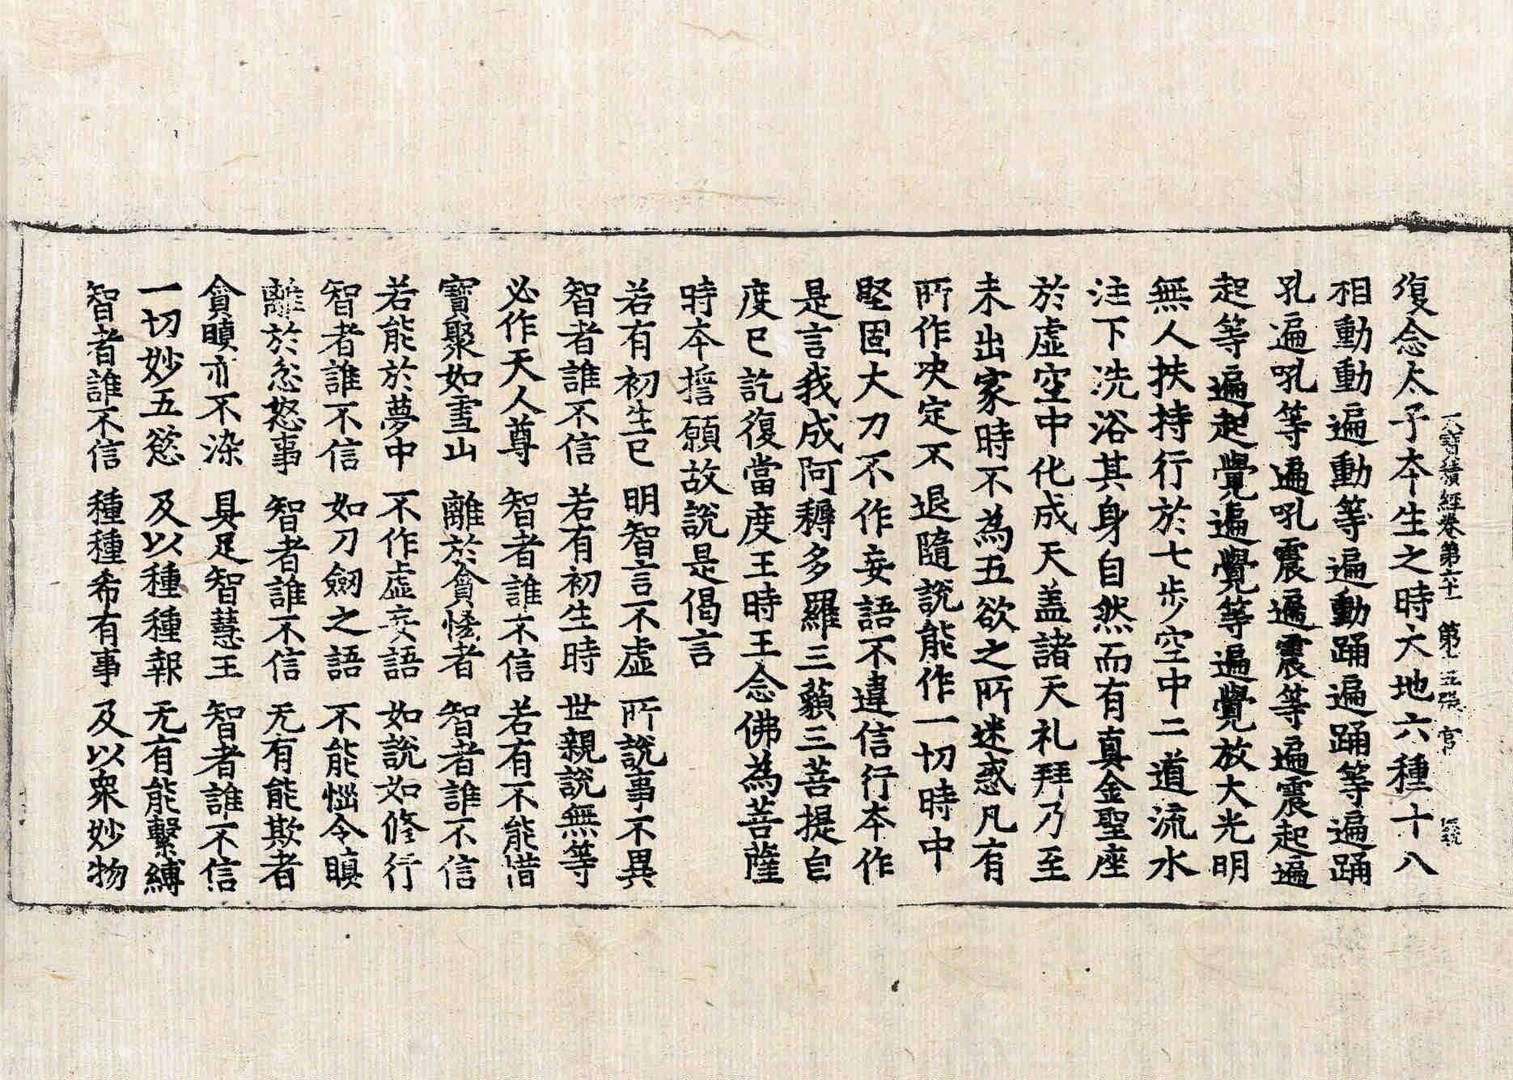 大寶積經卷第六十一 第十五張 官
復念太子夲生之時大地六種十八
相動動遍動等遍動踊遍踊等遍踊
吼遍吼等遍吼震遍震等遍震起遍
起等遍起覺遍覺等遍覺放大光明
無人扶持行於七歩空中二道流水
注下洗浴其身自然而有真金聖座
於虛空中化成天盖諸天礼拜乃至
未出家時不為五欲之所迷惑凡有
所作决定不退隨說能作一切時中
堅固大刀不作妄語不違信行夲作
是言我成阿耨多羅三藐三菩提自
度已訖復當度王時王念佛為菩薩
時夲誓願故說是偈言
若有初生已 明智言不虛 所說事不異
智者誰不信 若有初生時 世親說無等
必作天人尊 智者誰不信 若有不能惜
寶聚如雪山 離於貪悋者 智者誰不信
若能於夢中 不作虛妄語 如說如修行
智者誰不信 如刀劒之語 不能惱令瞋
離於忿怒事 智者誰不信 无有能欺者
貪瞋亦不染 具足智慧王 智者誰不信
一切妙五慾 及以種種報 无有能繫縛
智者誰不信 種種希有事 及以衆妙物